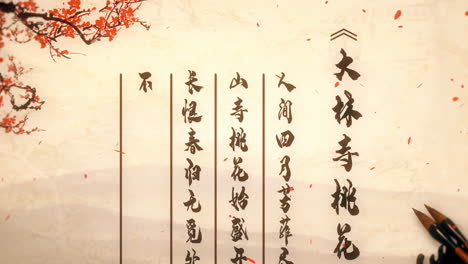 《大林寺桃花
人间四月芳菲尽
山寺桃花始盛开
长恨春归无觅处
不